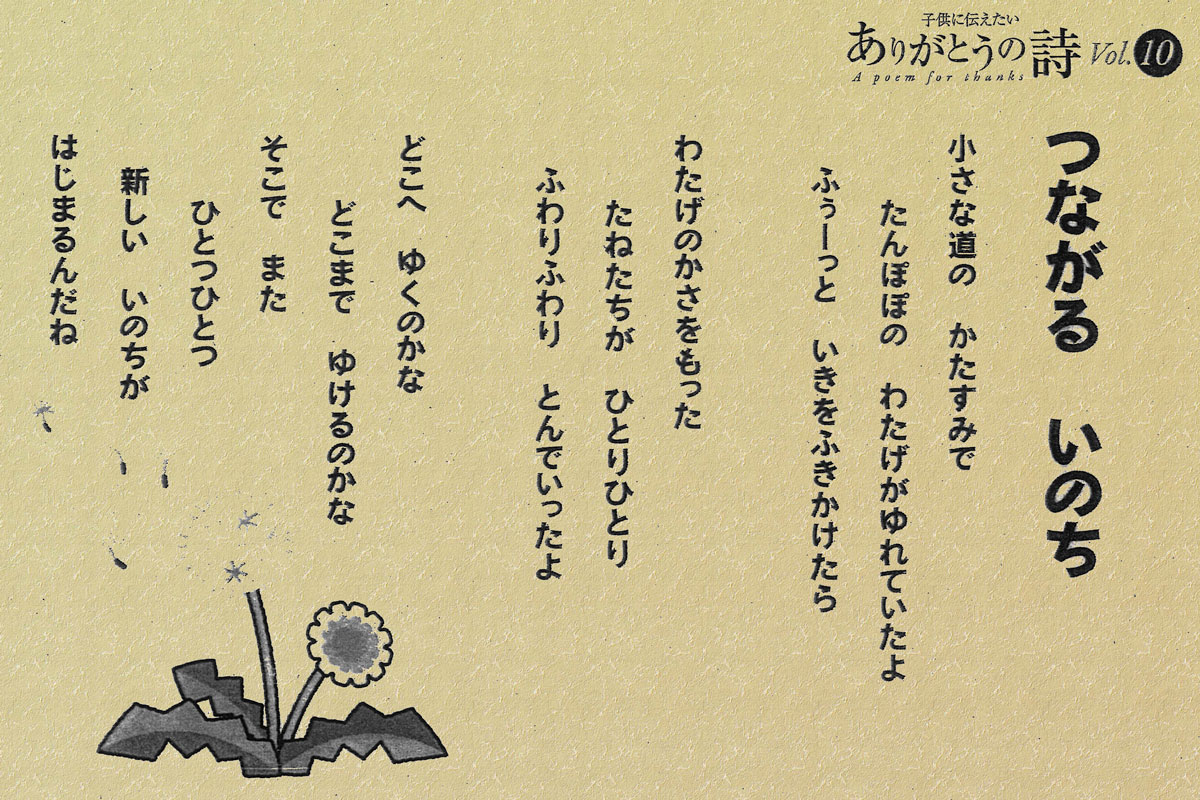 子供に伝えたい
ありがとうの詩 Vol.10
A poem for thanks
つながる　いのち
小さな道の　かたすみで
たんぽぽの　わたげがゆれていたよ
ふぅーっと　いきをふきかけたら
わたげのかさをもった
たねたちが　ひとりひとり
ふわりふわり　とんでいったよ
どこへ　ゆくのかな
どこまで　ゆけるのかな
そこで　また
ひとつひとつ
新しい　いのちが
はじまるんだね